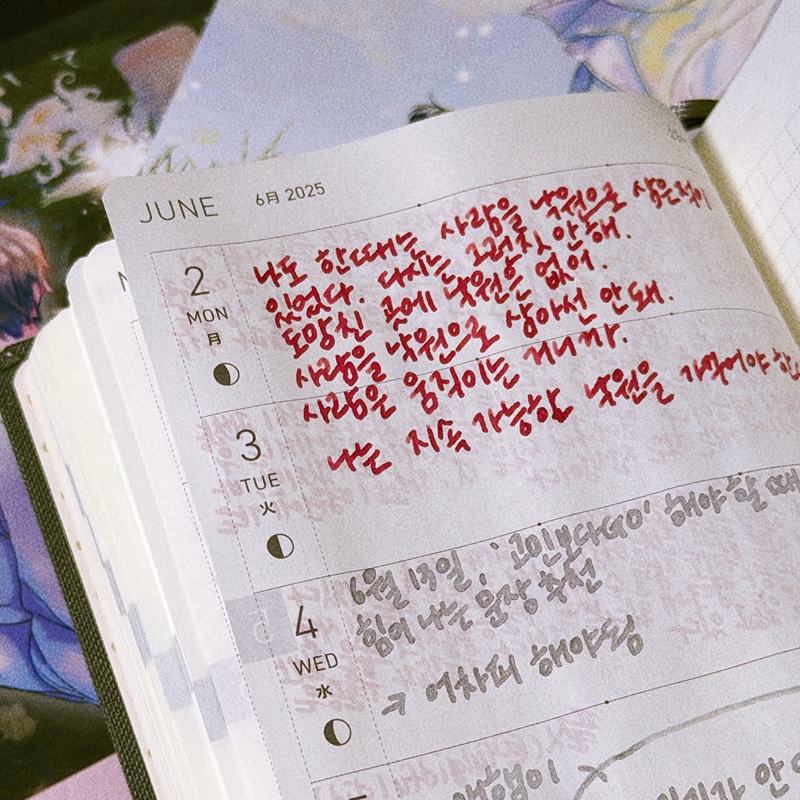 JUNE 6月 2025
2
MON
月
나도 한때는 사람을 낙원으로 삼은적이
있었다. 다시는 그러지 안해.
도망친 곳에 낙원은 없어.
사람을 낙원으로 삼아선 안돼.
사람은 움직이는 거니까.
3
TUE
火
나는 지속가능한 낙원을 가져야
4
WED
水
6월 13일, '고민보다GO' 해야 할 때
힘이 나는 문장 추천
→ 어차피 해야됨